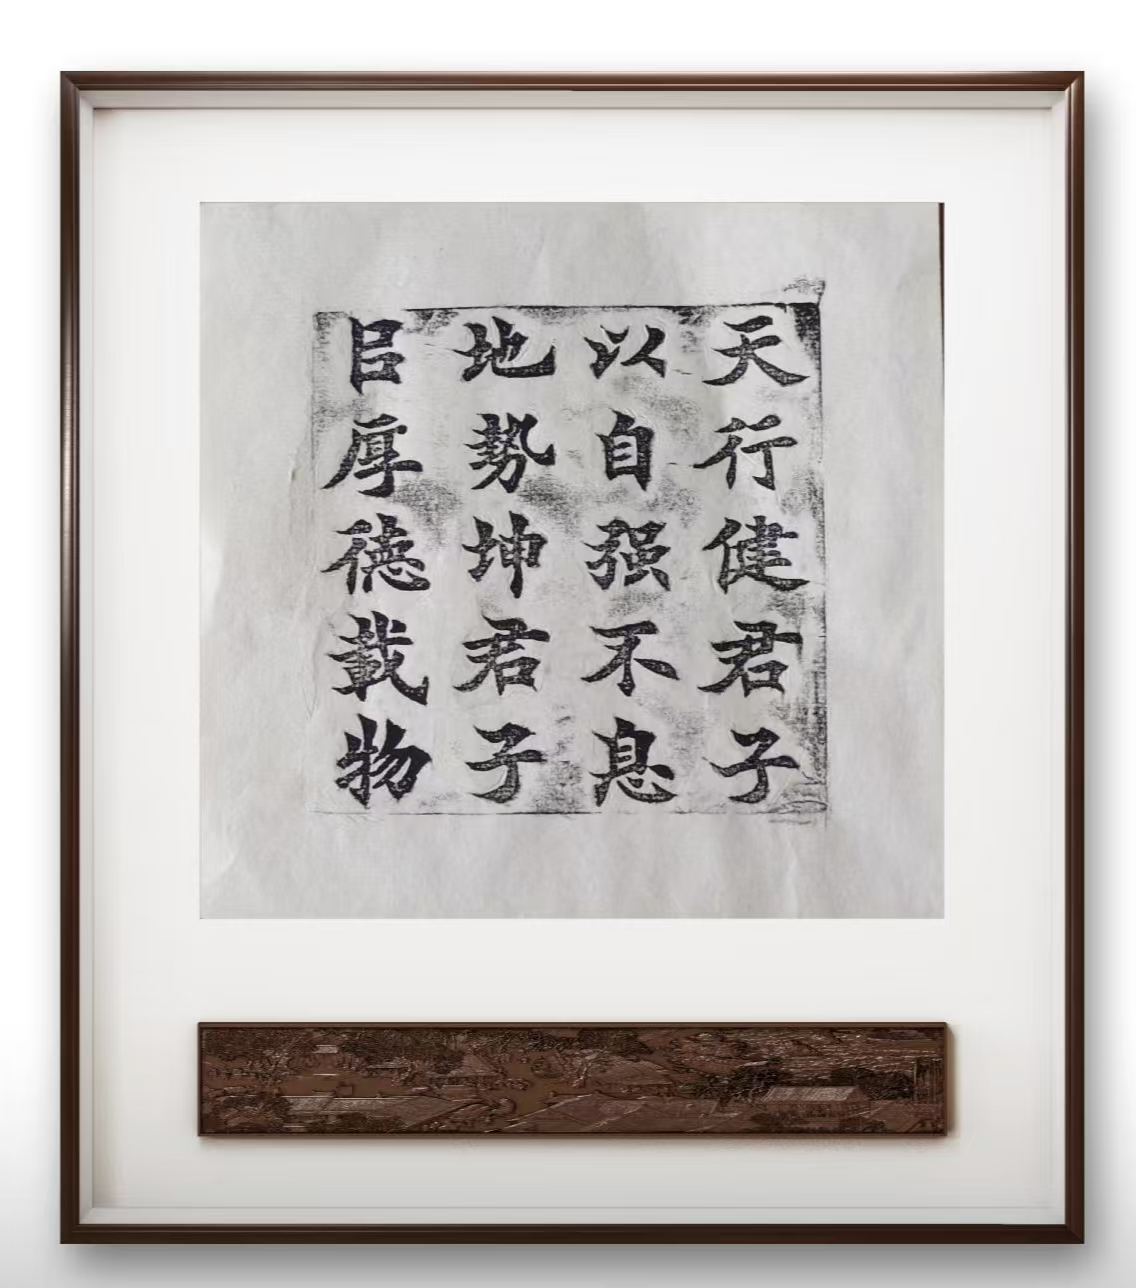 天行健君子
以自强不息
地势坤君子
㠯厚德載物